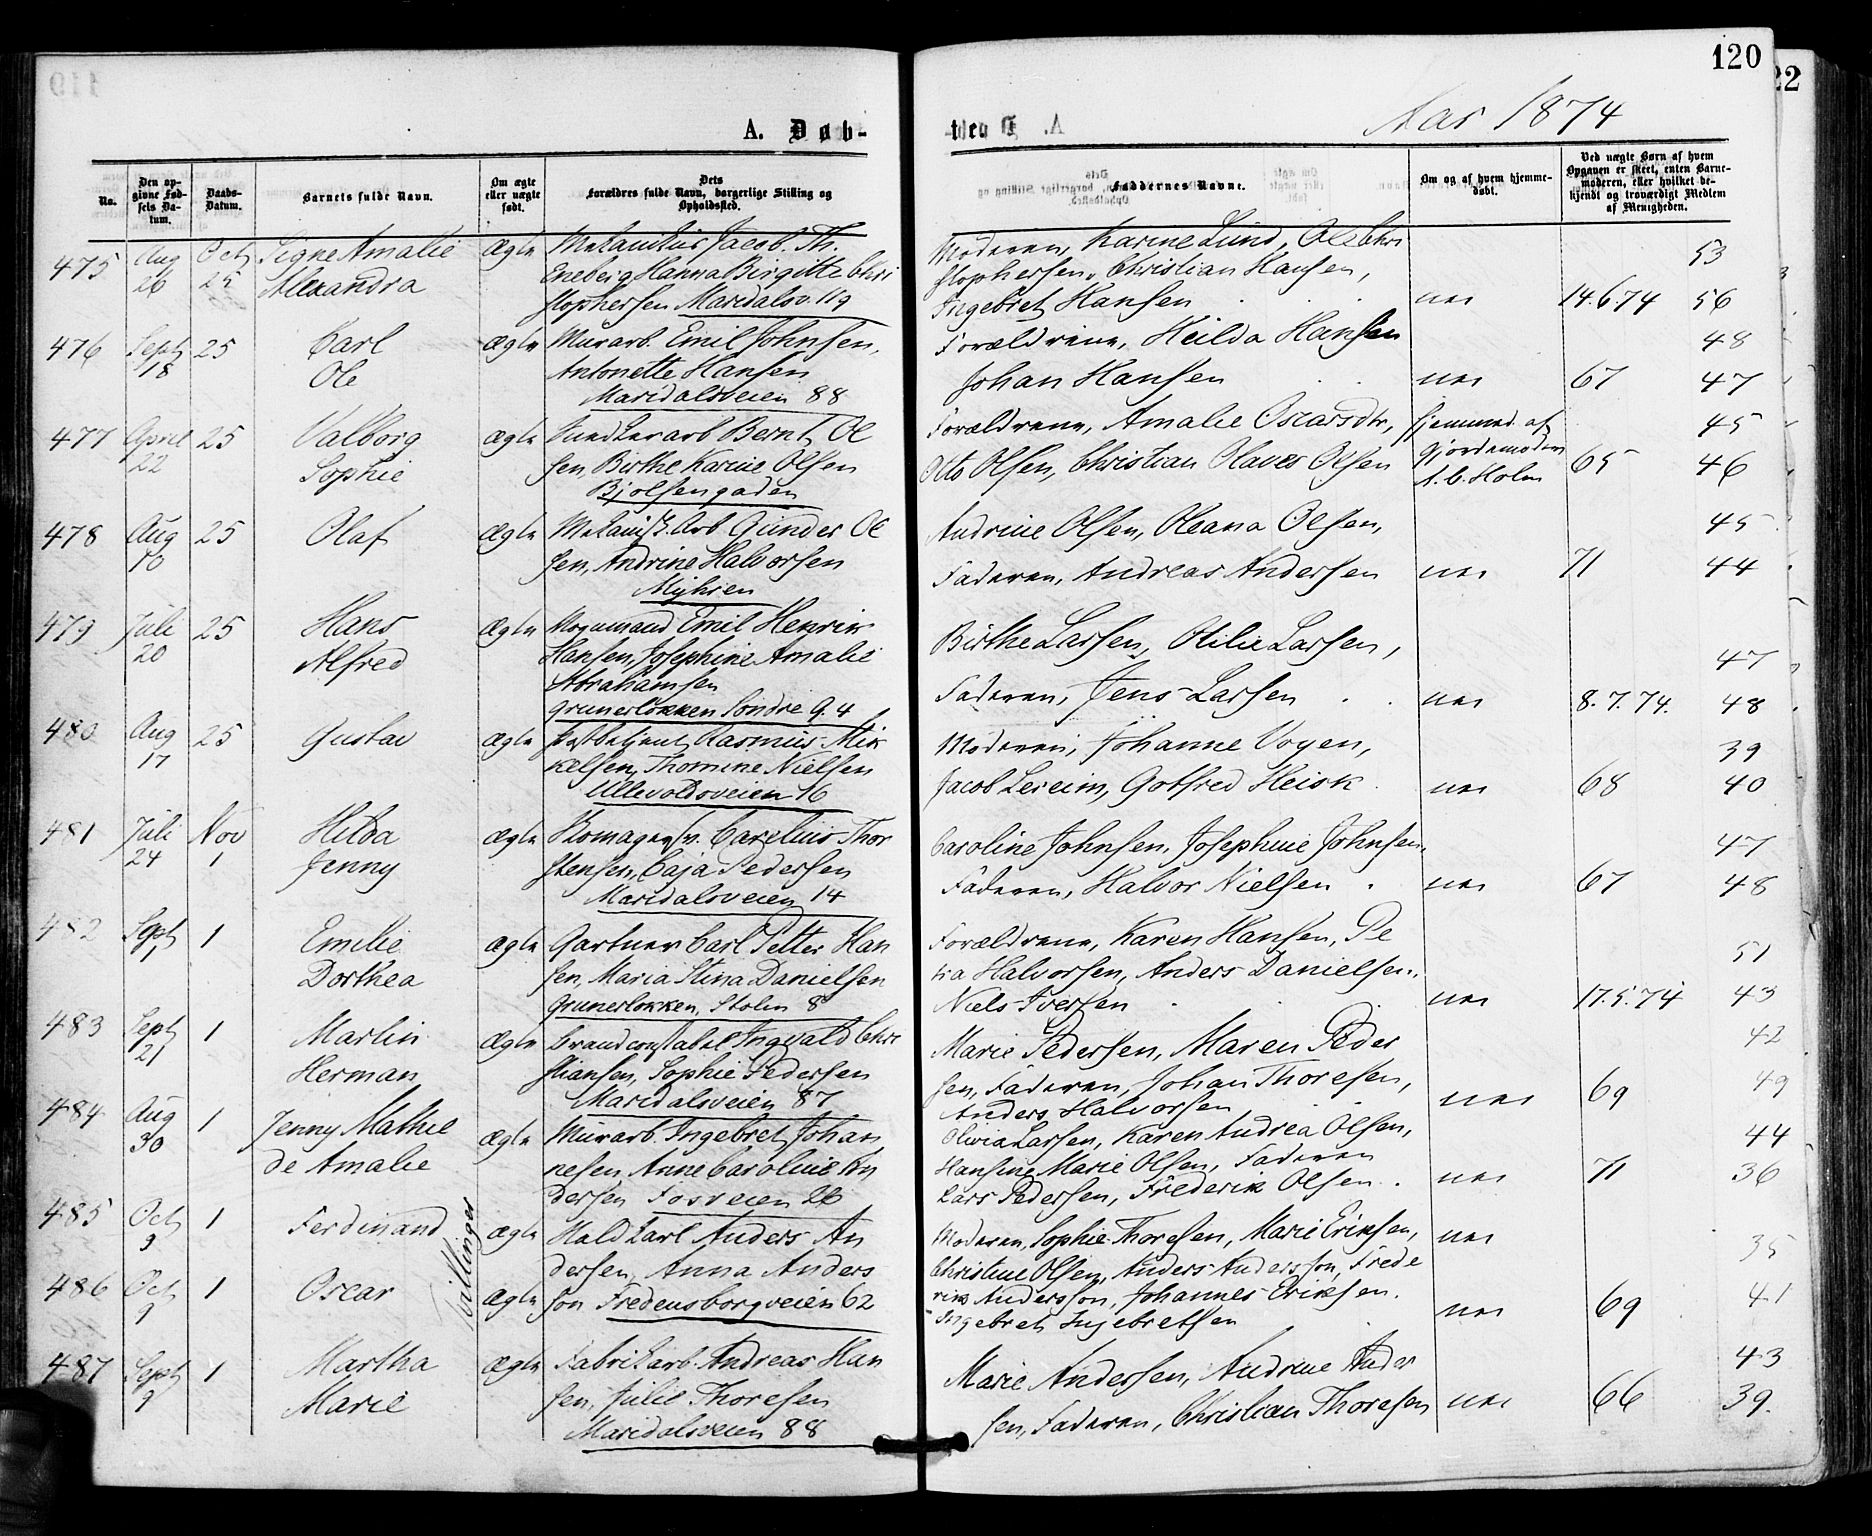 120
22
Aar 1874
A. Døb-
te.
No.
Den opgivne Fødsels Datum.
Daabs-Datum.
Barnets fulde Navn.
Om ægte eller uægte født.
Dets
Forældres fulde Navn, borgerlige Stilling og
Opholdssted.
Faddernes Navne.
Om og af hvem hjemmedøbt.
Ved uægte Børn af hvem
Opgaven er skeet, enten Barnemoderen, eller hvilket bekjendt og troværdigt Medlem
af Menigheden.
475 Aug 26 Oct 25 Signe Amalie Alexandra ægte
Mekanikus Jacob Th.
Eneberg Hanna Birgitte Chri
stophersen Maridalsv. 119
Moderen, Karine Lund, Ole Chri
stophersen, Christian Hansen,
Ingebret Hansen nei 14.6.74 53 56
476 Sept 18 25 Carl Ole ægte
Murarb. Emil Johnsen,
Antonette Hansen
Maridalsveien 88
Forældrene, Heilda Hansen
Johan Hansen nei 67 48 47
477 April 22 25 Valborg Sophie ægte
Bernt Ol
sen, Birthe Karine Olsen
Bjølsengaden
Forældrene, Amalie Oscarsdtr,
Otto Olsen, Christian Olaves Olsen
hjemmed. af
Gjordemoder
Holm 65 45 46
478 Aug 10 25 Olaf ægte
Mekanisk Arb Gunder Ol
sen, Andrine Halvorsen
Myhren
Andrine Olsen, Oleana Olsen,
Faderen, Andreas Andersen nei 71 45 44
479 Juli 20 25 Hans Alfred ægte
Vognmand Emil Henrik
Hansen, Josephine Amalie
Abrahamsen
Grünerløkken Søndre G. 4
Birthe Larsen, Otilie Larsen,
Faderen, Jens Larsen nei 8.7.74. 47 48
480 Aug 17 25 Gustav ægte
Postbetjent Rasmus Mik
kelsen, Thomine Nielsen
Ullevoldsveien 16
Moderen, Johanne Vogen,
Jacob Lereim, Gotfred Heisk nei 68 39 40
481 Juli 24 Nov 1 Hilda Jenny ægte
Skomagersv. Carelius Thor
stensen, Caja Pedersen
Maridalsveien 14
Caroline Johnsen, Josephine Johnsen,
Faderen, Halvor Nielsen nei 67 47 48
482 Sept 1 1 Emilie Dorthea ægte
Gartner Carl Petter Han
sen, Maria Stina Danielsen
Grünerløkken, Stolm 8
Forældrene, Karen Hansen, Pe
tra Halvorsen, Anders Danielsen,
Niels Iversen nei 17.5.74 51 43
483 Sept 21 1 Martin Herman ægte
Brandconstabel Ingvald Chri
stiansen, Sophie Pedersen
Maridalsveien 87
Marie Pedersen, Maren Peder
sen, Faderen, Johan Thoresen,
Anders Halvorsen nei 69 42 49
484 Aug 30 1 Jenny Mathil
de Amalie ægte
Murarb. Ingebret Johan
nesen Anne Caroline An
dersen Fosveien 26
Olivia Larsen, Karen Andrea Olsen,
Hansine Marie Olsen, Faderen
Lars Pedersen, Frederik Olsen. nei 71 44 36
485 Oct 9 1 Ferdinand ægte
Tvillinger
486 Oct 9 1 Oscar ægte
Anders An
dersen, Anna Anders
son Fredensborgveien 62
Moderen, Sophie Thoresen, Marie Eriksen, nei
Christine Olsen, Anders Andersson, Frede
rik Andersson, Johannes Eriksen.
Ingebret Ingebretsen nei 69 35 41
487 Sept 9 1 Martha Marie ægte
Fabrikarb. Andreas Han
sen, Julie Thoresen
Maridalsveien 88
Marie Andersen, Andrine Ander
sen, Faderen, Christian Thoresen nei 66 43 39.